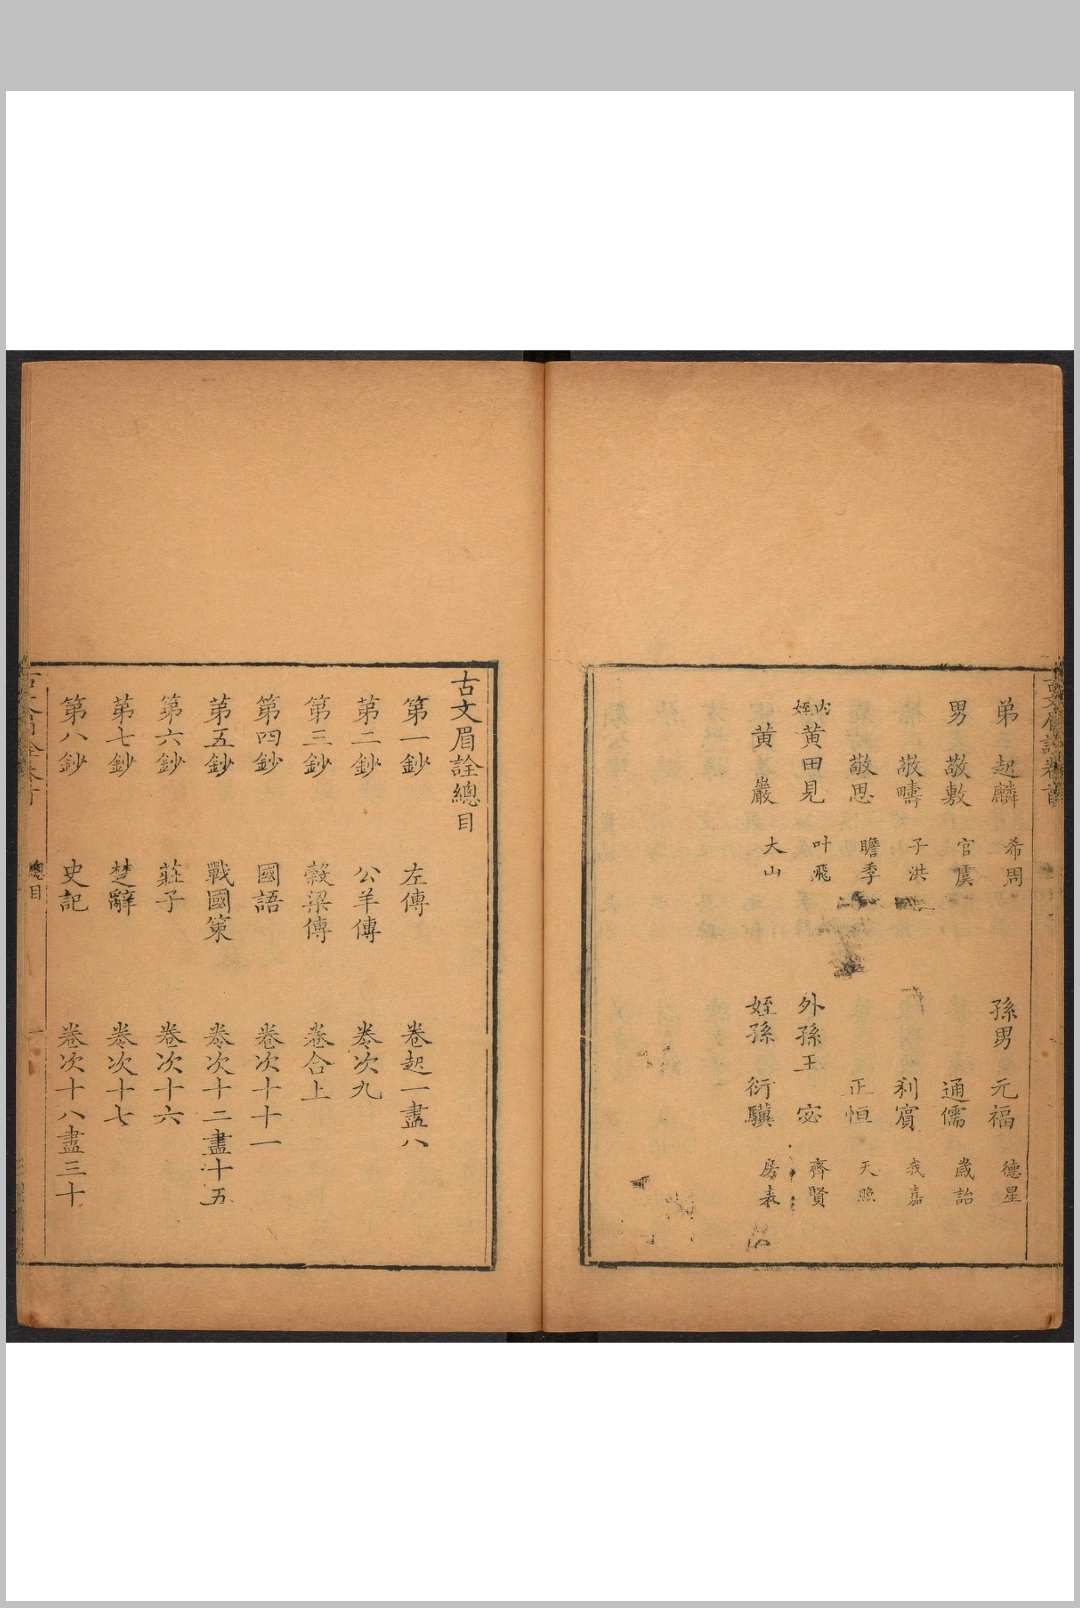 弟 起麟 希周 孫男 元福 德星
男 敬敷 官虞 通儒 歲詒
敬疇 子洪 利賓 我嘉
敬思 瞻季 正恒 天煦
姪 黃田見 叶飛 外孫王 宓 齊賢
黃 巖 大山 姪孫 衍驥 房表
古文眉詮總目
第一鈔 左傳 卷起一盡八
第二鈔 公羊傳 卷次九
第三鈔 穀梁傳 卷合上
第四鈔 國語 卷次十十一
第五鈔 戰國策 卷次十二盡十五
第六鈔 莊子 卷次十六
第七鈔 楚辭 卷次十七
第八鈔 史記 卷次十八盡三十
總目